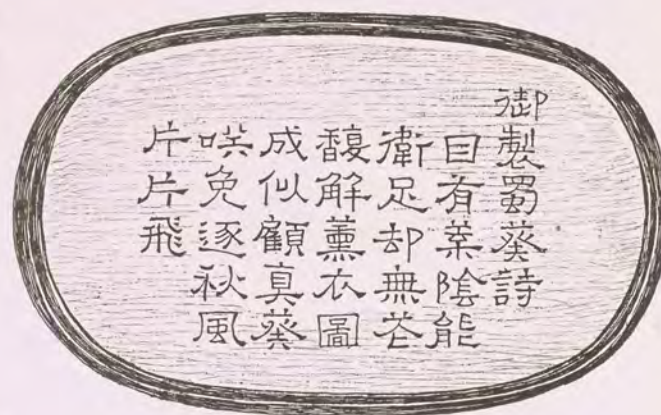 御製蜀葵詩
自有葉陰能
衛足却無花
馥解薰衣圖
成似顧真葵
咲免逐秋風
片片飛